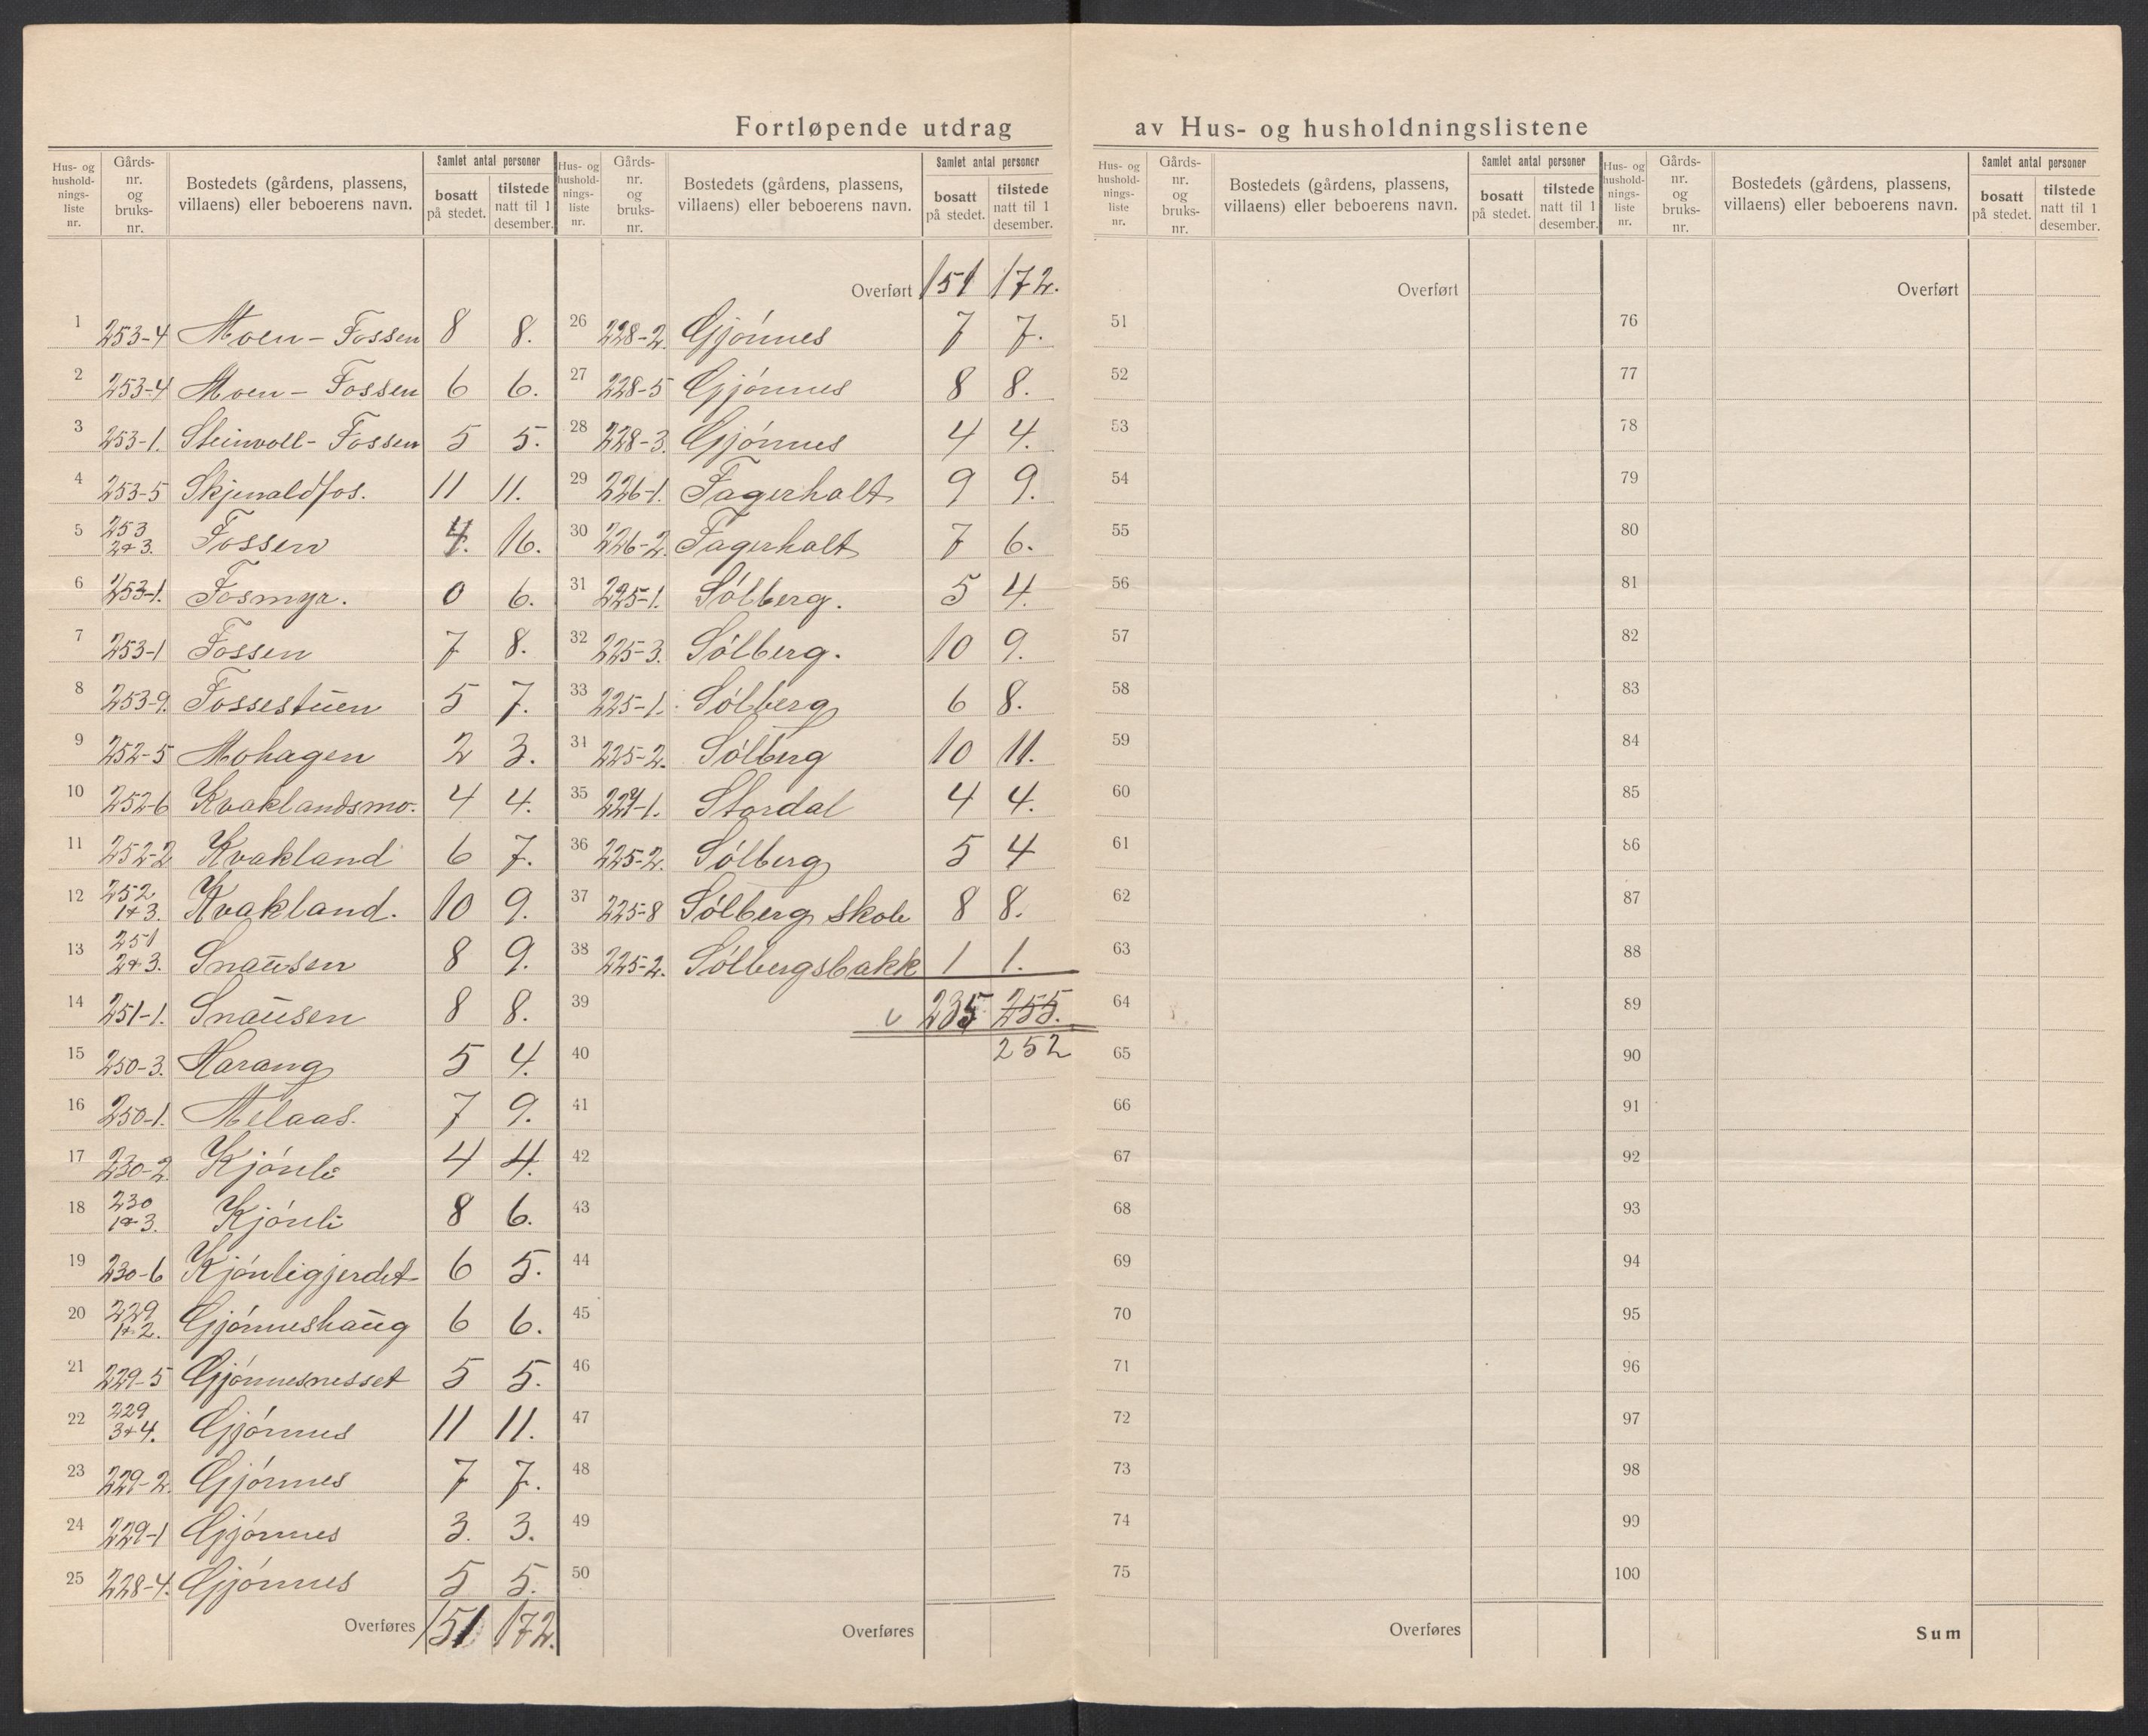 Fortløpende utdrag av Hus- og husholdningslistene
Hus- og husholdnings-liste nr. | Gårds-nr. og bruks-nr. | Bostedets (gårdens, plassens, villaens) eller beboerens navn. | Samlet antal personer bosatt på stedet. | tilstede natt til 1 desember.
1 253-4 Moen - Fossen 8 8.
2 253-4 Moen - Fossen 6 6.
3 253-1. Steinvoll - Fossen 5 5.
4 253-5 Skjenaldfos. 11 11.
5 253 2+3. Fossen 4. 16.
6 253-1. Fosmyr. 0 6.
7 253-1 Fossen 7 8.
8 253-9. Fossestuen 5 7.
9 252-5 Mohagen 2 3.
10 252-6 Kvaklandsmo. 4 4.
11 252-2 Kvakland 6 7.
12 252 1+3. Kvakland. 10 9.
13 251 2+3. Snausen 8 9.
14 251-1. Snausen 8 8.
15 250-3. Harang 5 4.
16 250-1. Melaas. 7 9.
17 230-2 Kjónli 4 4.
18 230 1+3. Kjónli 8 6.
19 230-6 Kjónligjerdet 6 5.
20 229 1+2. Gjónneshaug 6 6.
21 229-5 Gjónnesnesset 5 5.
22 229 3+4. Gjónnes 11 11.
23 229-2. Gjónnes 7 7.
24 229-1 Gjónnes 3. 3.
25 228-4. Gjónnes 5 5.
Overføres 151 172.
Hus- og husholdnings-liste nr. | Gårds-nr. og bruks-nr. | Bostedets (gårdens, plassens, villaens) eller beboerens navn. | Samlet antal personer bosatt på stedet. | tilstede natt til 1 desember.
Overført 151 172.
26 228-2. Gjónnes 7 7.
27 228-5 Gjónnes 8 8.
28 228-3. Gjónnes 4 4.
29 226-1. Fagerholt 9 9.
30 226-2. Fagerholt 7 6.
31 225-1. Sólberg. 5 4.
32 225-3. Sólberg. 10 9.
33 225-1. Sólberg 6 8.
34 225-2. Sólberg 10 11.
35 224-1. Stordal 4 4.
36 225-2. Sólberg 5 4
37 225-8 Sólberg skole 8 8.
38 225-2. Sólbergsbakk 1 1.
39 235 255.
40 252
41
42
43
44
45
46
47
48
49
50
Overføres
Hus- og husholdnings-liste nr. | Gårds-nr. og bruks-nr. | Bostedets (gårdens, plassens, villaens) eller beboerens navn. | Samlet antal personer bosatt på stedet. | tilstede natt til 1 desember.
Overført
51
52
53
54
55
56
57
58
59
60
61
62
63
64
65
66
67
68
69
70
71
72
73
74
75
Overføres
Hus- og husholdnings-liste nr. | Gårds-nr. og bruks-nr. | Bostedets (gårdens, plassens, villaens) eller beboerens navn. | Samlet antal personer bosatt på stedet. | tilstede natt til 1 desember.
Overført
76
77
78
79
80
81
82
83
84
85
86
87
88
89
90
91
92
93
94
95
96
97
98
99
100
Sum